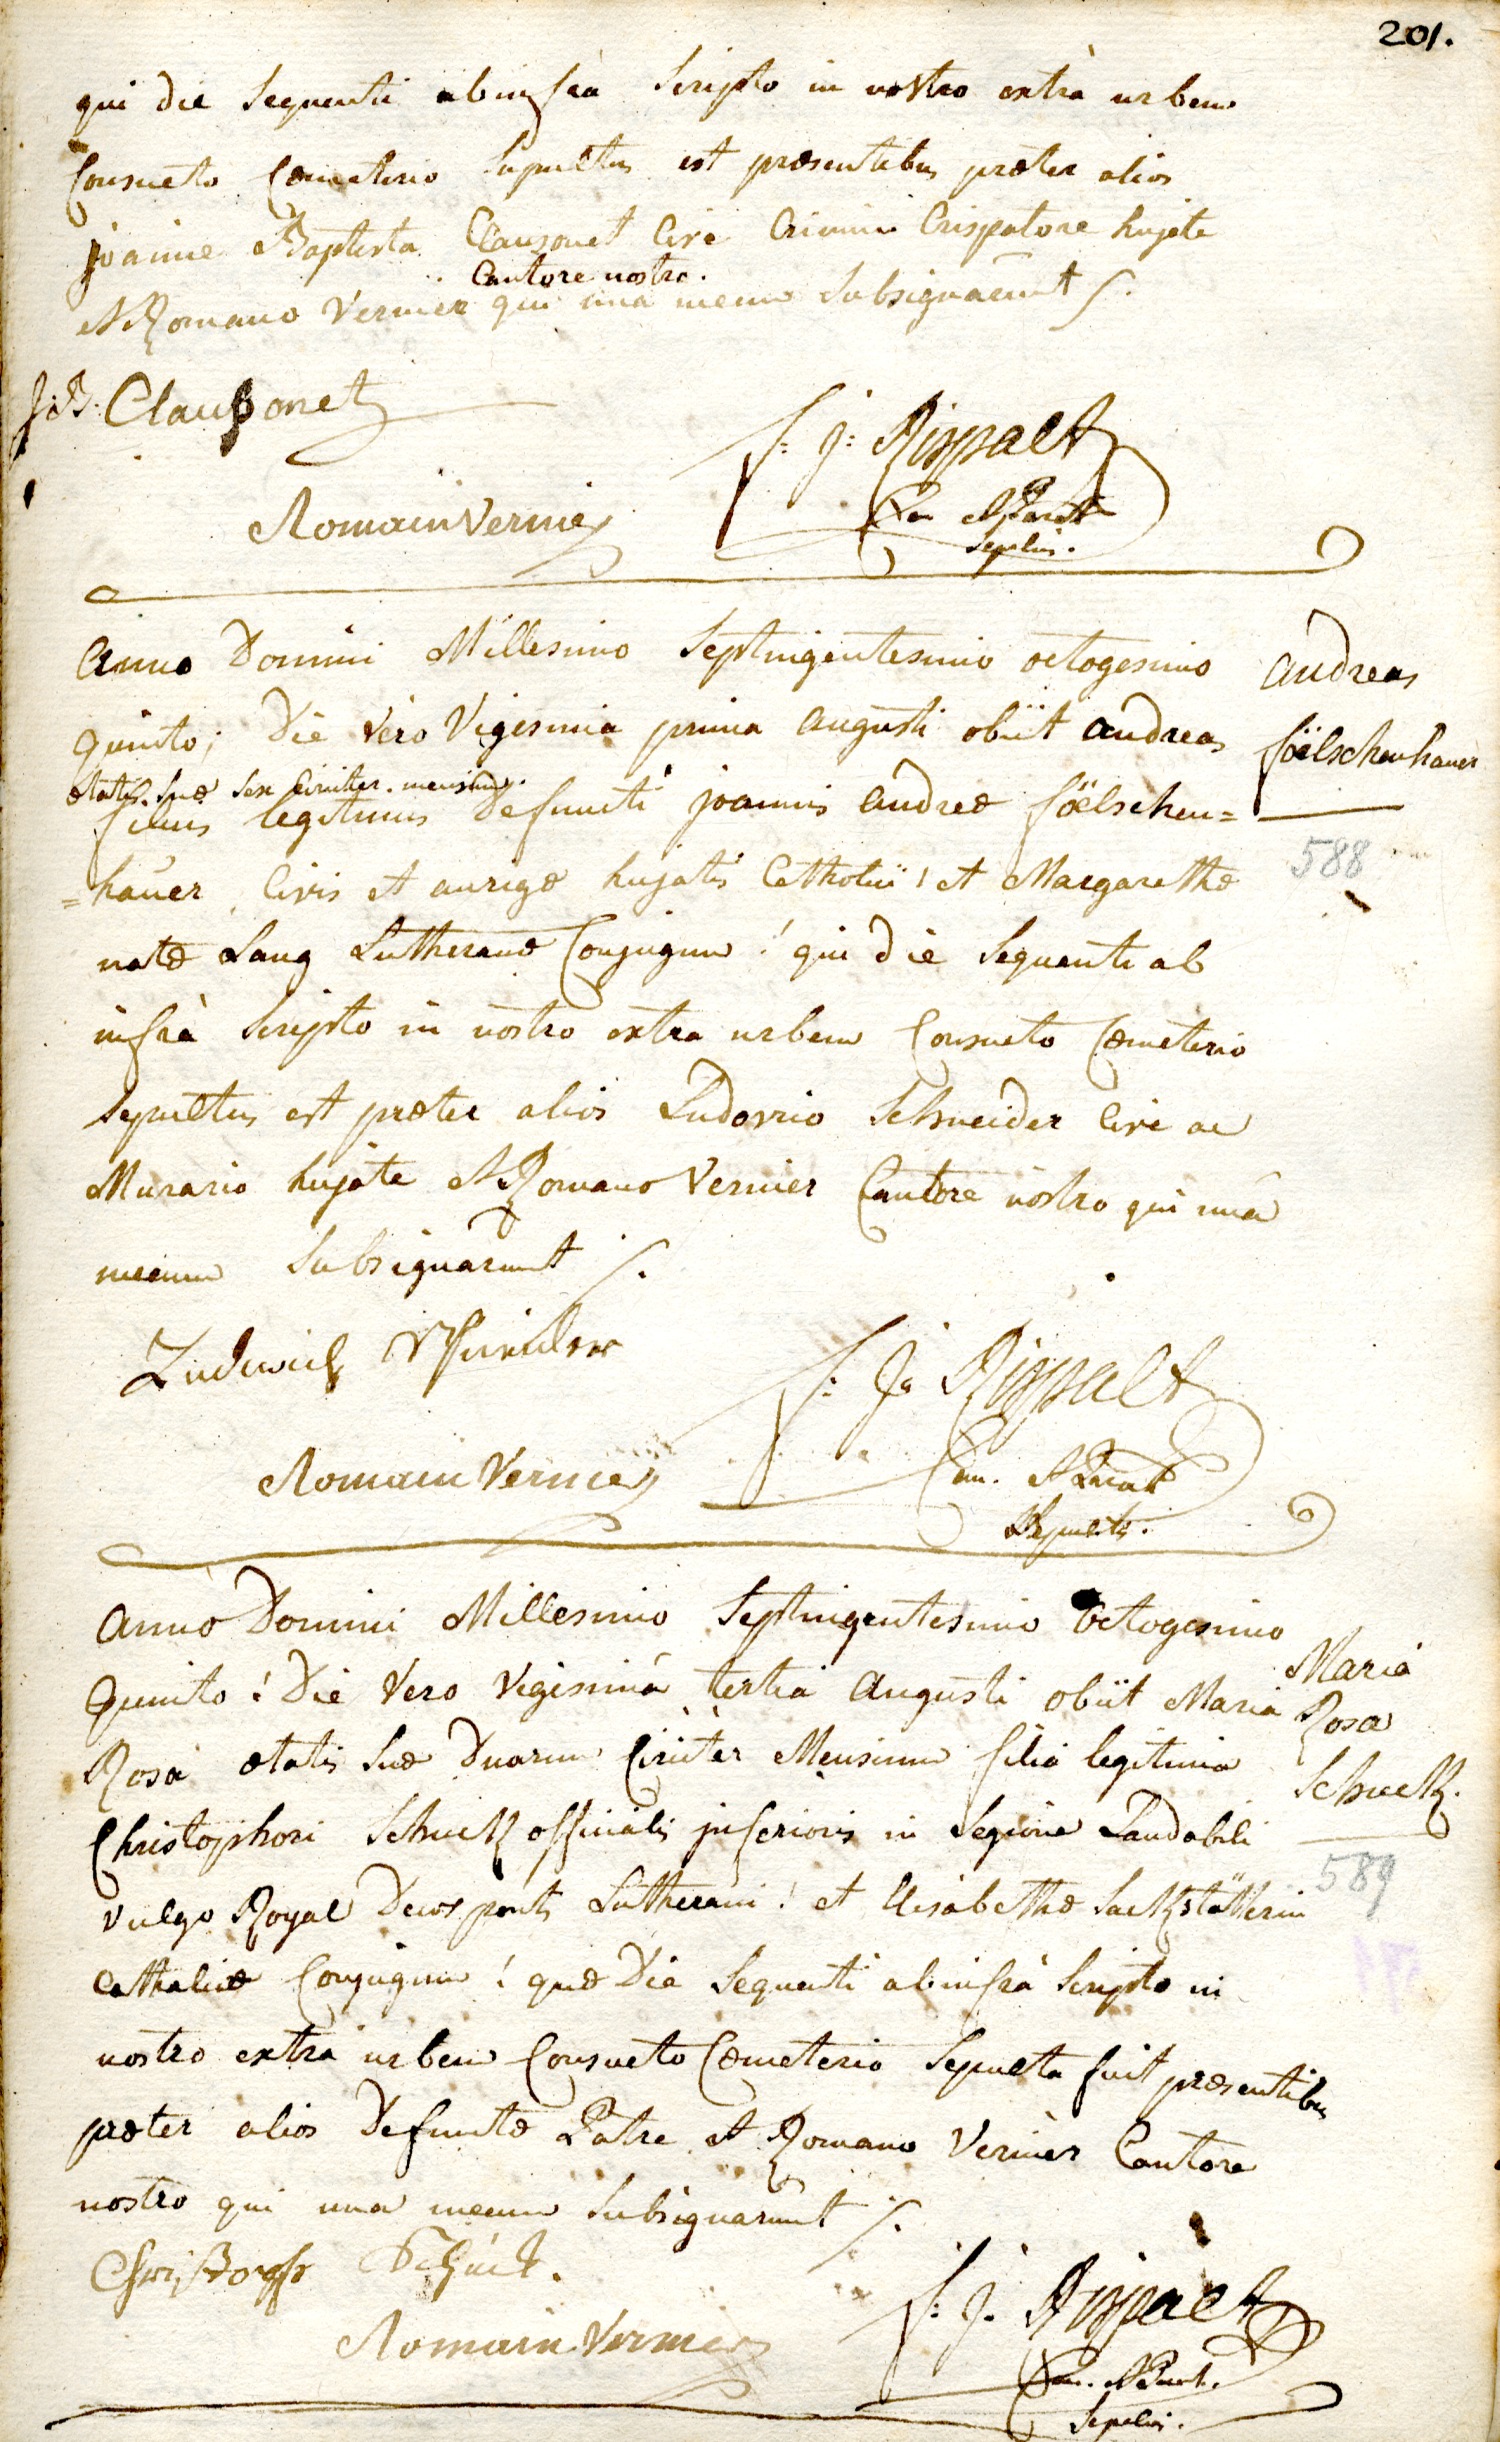 201.
qui die Sequenti ab infrà Scripto in nostro extrà urbem
Consueto Cœmeterio Sepultus est præsentibus præter alios
joanne Baptista Clausonet Cive Crinium Crispatore hujate
Cantore nostro.
et Romano Vernier qui unà mecum Subsignarunt /.
J: B: Claussonet
F: J: Rispalt
Romain Vernier
Can. et Paroch
Sepelivi.
Anno Domini Millesimo Septingentesimo octogesimo
Andreas
Quinto; Die Vero Vigesima prima Augusti obiit Andreas
föelschenhauer
ætatis Suæ Sex Circiter mensium.
filius legitimus Defuncti joannis Andreæ föelschen=
588
=hauer Civis et aurigæ hujatis Catholici! et Margarethæ
natæ Lang Lutheranæ Conjugum! qui die Sequenti ab
infrà Scripto in nostro extra urbem Consueto Cœmeterio
Sepultus est præter alios Ludovico Schneider Cive ac
Murario hujate et Romano Vernier Cantore nostro qui unà
mecum Subsignarunt /.
Ludwich Schneider
F: J: Rispalt
Romain Vernier
Can. et Paroch
Anno Domini Millesimo Septingentesimo Octogesimo
Quinto! Die Vero Vigesimà tertia Augusti obiit Maria
Maria
Rosa
Rosa ætatis Suæ Duarum Circiter Mensium filia legitima
Schuck.
Christophori Schuck officialis inferioris in Legione Laudabili
589
Vulgo Royal Deux ponts Lutherani! et Elisabethæ Sackstätterin
Catholicæ Conjugum! quæ Die Sequenti ab infrà Scripto in
nostro extrà urbem Consueto Cœmeterio Sepulta fuit præsentibus
præter alios Defunctæ Patre et Romano Vernier Cantore
nostro qui una mecum Subsignarunt /.
Christoph Schuck.
F: J: Rispalt
Romain Vernier
Can. et Paroch.
Sepelivi.